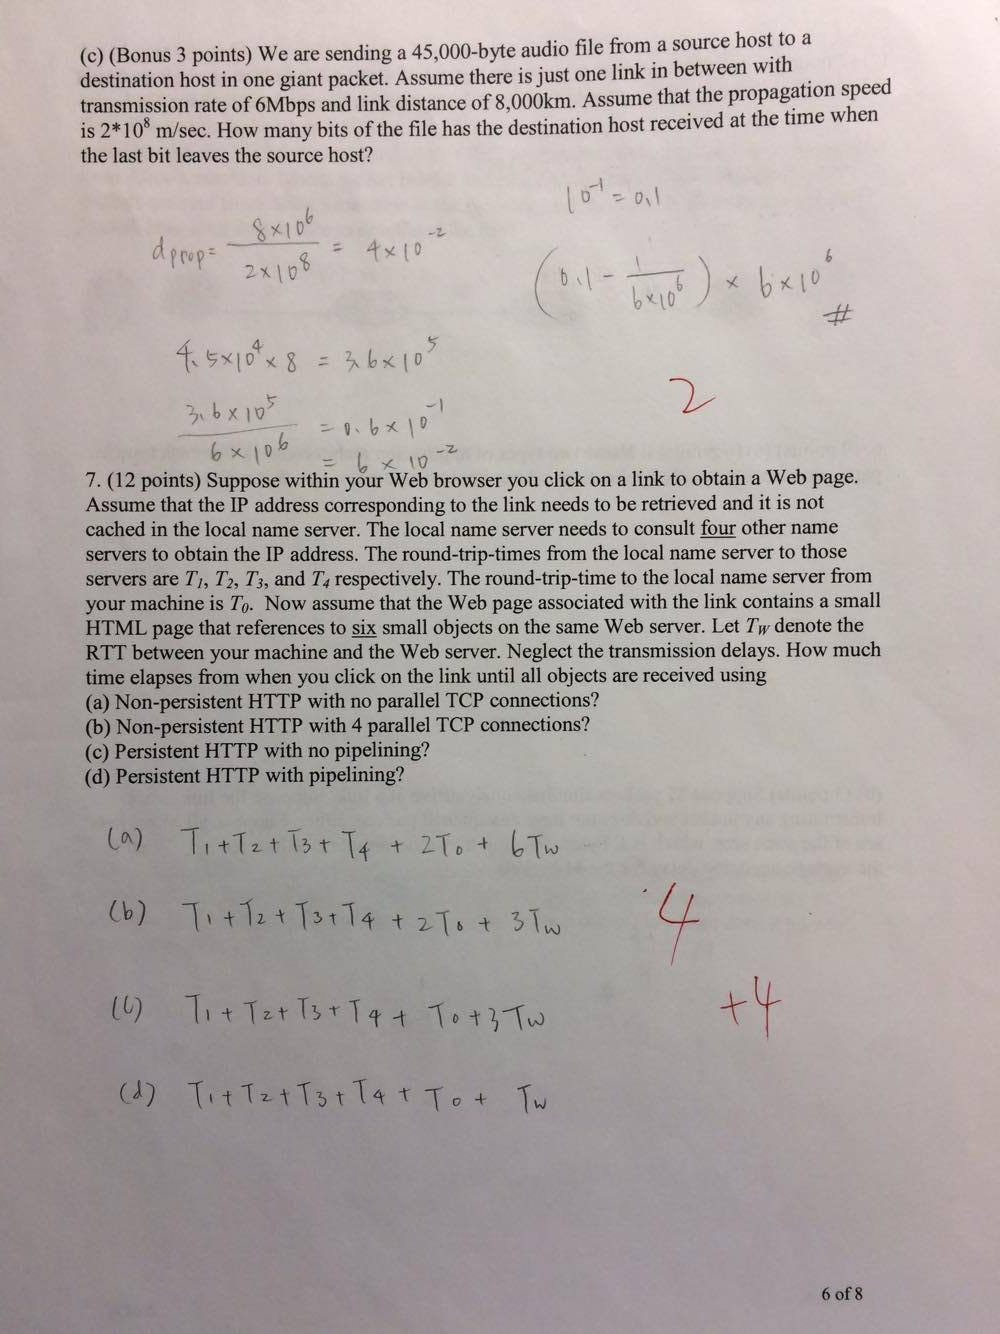 (c) (Bonus 3 points) We are sending a 45,000-byte audio file from a source host to a
destination host in one giant packet. Assume there is just one link in between with
transmission rate of 6Mbps and link distance of 8,000km. Assume that the propagation speed
is 2*10⁸ m/sec. How many bits of the file has the destination host received at the time when
the last bit leaves the source host?
10⁻¹ = 0.1
dprop = 8×10⁶ / 2×10⁸ = 4×10⁻²
(0.1 - 1 / 6×10⁶) × 6×10⁶ #
4.5×10⁴×8 = 3.6×10⁵
2
3.6×10⁵ / 6×10⁶ = 0.6×10⁻¹
= 6×10⁻²
7. (12 points) Suppose within your Web browser you click on a link to obtain a Web page.
Assume that the IP address corresponding to the link needs to be retrieved and it is not
cached in the local name server. The local name server needs to consult four other name
servers to obtain the IP address. The round-trip-times from the local name server to those
servers are T₁, T₂, T₃, and T₄ respectively. The round-trip-time to the local name server from
your machine is T₀. Now assume that the Web page associated with the link contains a small
HTML page that references to six small objects on the same Web server. Let Tw denote the
RTT between your machine and the Web server. Neglect the transmission delays. How much
time elapses from when you click on the link until all objects are received using
(a) Non-persistent HTTP with no parallel TCP connections?
(b) Non-persistent HTTP with 4 parallel TCP connections?
(c) Persistent HTTP with no pipelining?
(d) Persistent HTTP with pipelining?
(a) T₁+T₂+T₃+T₄ + 2T₀ + 6Tw
(b) T₁+T₂+T₃+T₄ + 2T₀ + 3Tw
4
(c) T₁+T₂+T₃+T₄+ T₀+3Tw
+4
(d) T₁+T₂+T₃+T₄+T₀+ Tw
6 of 8